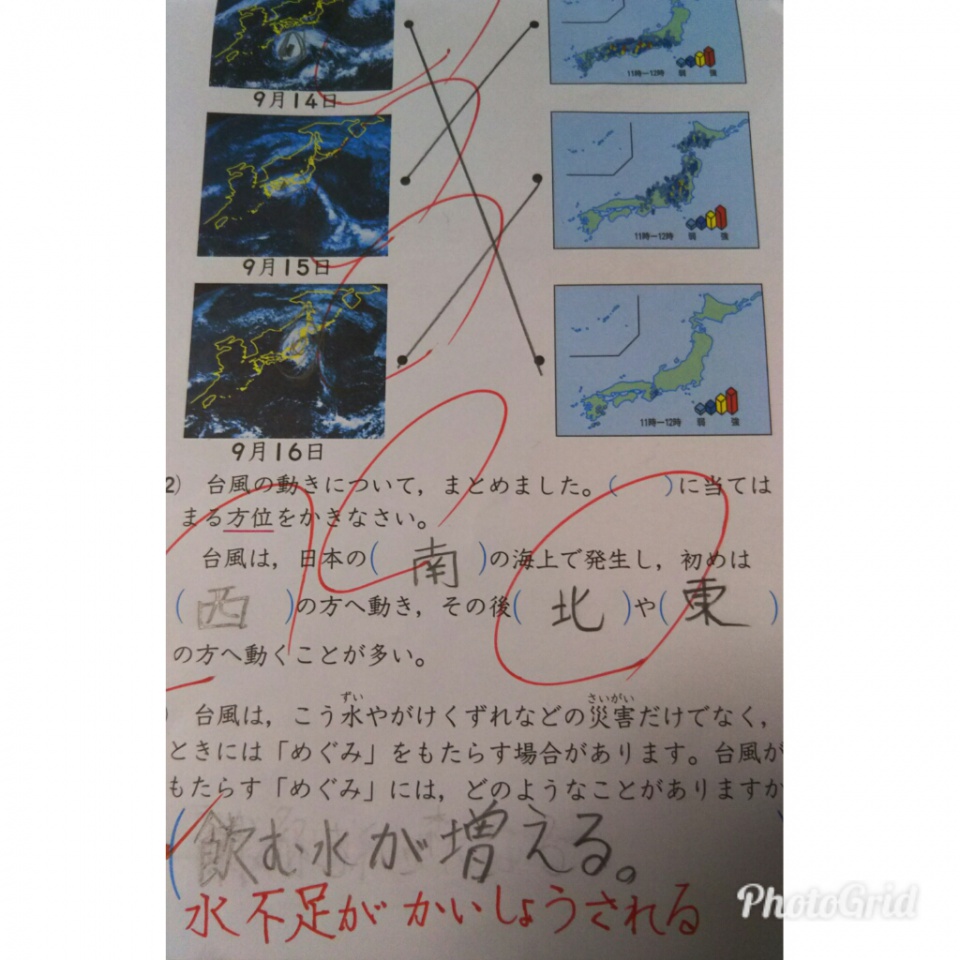 11時−12時 弱 強
9月14日
11時−12時 弱 強
9月15日
11時−12時 弱 強
9月16日
2) 台風の動きについて，まとめました。( )に当ては
まる方位をかきなさい。
台風は，日本の( 南 )の海上で発生し，初めは
( 西 )の方へ動き，その後( 北 )や( 東 )
の方へ動くことが多い。
ずい さいがい
) 台風は，こう水やがけくずれなどの災害だけでなく，
ときには「めぐみ」をもたらす場合があります。台風が
もたらす「めぐみ」には，どのようなことがありますか
( 飲む水が増える。 )
水不足がかいしょうされる
PhotoGrid